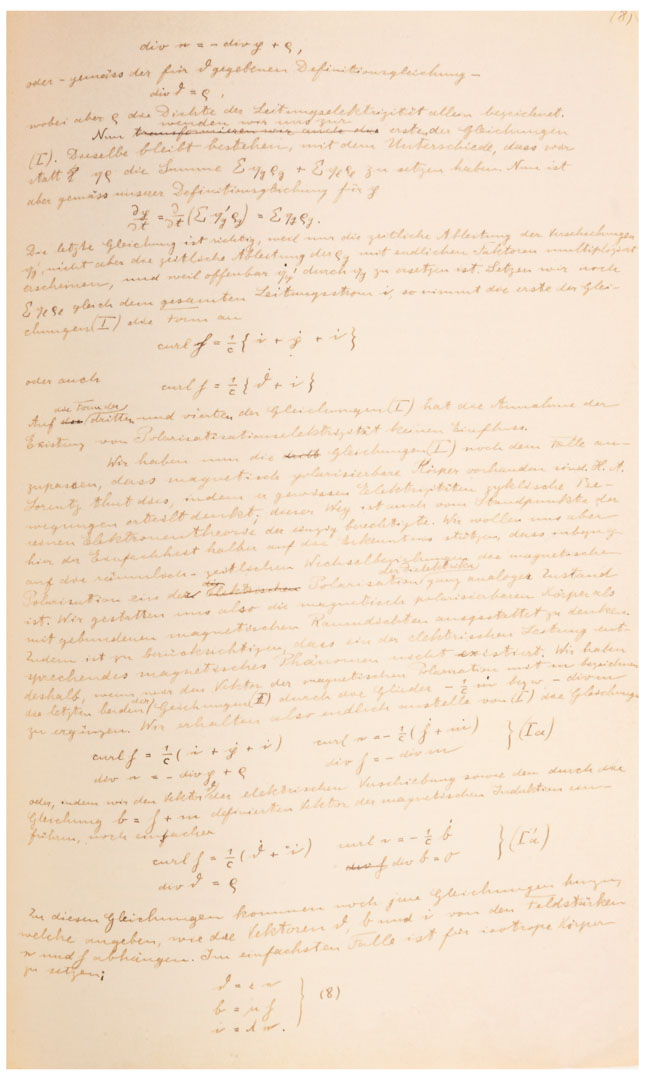 (8)
div n = - div y + ρ,
oder - gemäss der für ϑ gegebenen Definitionsgleichung -
div ϑ = ρ,
wobei aber ρ die Dichte der Leitungselektrizität allein bezeichnet.
wenden wir uns zur
Nun transformieren wir auch das ersten der Gleichungen
(I). Dieselbe bleibt bestehen, mit dem Unterschiede, dass wir
statt ηρ die Summe Σ ρ + Σ ρ zu setzen haben. Nun ist
aber gemäss unserer Definitionsgleichung für y
∂y/∂t = ∂/∂t (Σ ρ) = Σ ρ.
Die letzte Gleichung ist richtig, weil nur die zeitliche Ableitung der Verschiebungen
nicht aber die zeitliche Ableitung der mit endlichen Faktoren multipliziert
erscheinen, und weil offenbar durch zu ersetzen ist. Setzen wir noch
Σ gleich dem gesamten Leitungsstrom i, so nimmt die erste der Glei-
chungen (I) die Form an
curl f = 1/c { i + ẏ + i }
oder auch
curl f = 1/c { ϑ̇ + i }
die Form der
Auf dritten und vierten der Gleichungen (I) hat die Annahme der
Existenz von Polarisationselektrizität keinen Einfluss.
Wir haben nun die Gleichungen (I) noch dem Falle an-
zupassen, dass magnetisch polarisierbare Körper vorhanden sind. H. A.
Lorentz thut dies, indem er gewissen Elektrizitäten zyklische Be-
wegungen erteilt denkt; dieser Weg ist auch vom Standpunkte der
reinen Elektronentheorie der einzig berechtigte. Wir wollen uns aber
hier der Einfachheit halber auf die Erkenntnis stützen, dass inbezug
auf die räumlich-zeitlichen Wechselbeziehungen die magnetische
der Dielektrika
Polarisation ein der elektrischen Polarisation ganz analoger Zustand
ist. Wir gestatten uns also die magnetisch polarisierbaren Körper als
mit gebundenen magnetischen Raumdichten ausgestattet zu denken.
Zudem ist zu berücksichtigen, dass ein der elektrischen Leitung ent-
sprechendes magnetisches Phänomen nicht existiert. Wir haben
deshalb, wenn wir den Vektor der magnetischen Polarisation mit m bezeichnen
die letzten beiden der Gleichungen (I) durch die Glieder - 1/c ṁ bezw - div m
zu ergänzen. Wir erhalten also endlich anstelle von (I) die Gleichungen
curl f = 1/c ( i + ẏ + i ) curl n = - 1/c ( ḟ + ṁ ) } (Ia)
div n = - div y + ρ div f = - div m
oder, indem wir den Vektor ϑ der elektrischen Verschiebung sowie den durch die
Gleichung b = f + m definierten Vektor der magnetischen Induktion ein-
führen, noch einfacher
curl f = 1/c ( ϑ̇ + i ) curl n = - 1/c ḃ } (I'a)
div ϑ = ρ div f div b = 0
Zu diesen Gleichungen kommen noch jene Gleichungen hinzu,
welche angeben, wie die Vektoren ϑ, b und i von den Feldstärken
n und f abhängen. Im einfachsten Falle ist für isotrope Körper
zu setzen:
ϑ = ε n
b = μ f } (8)
i = λ n.